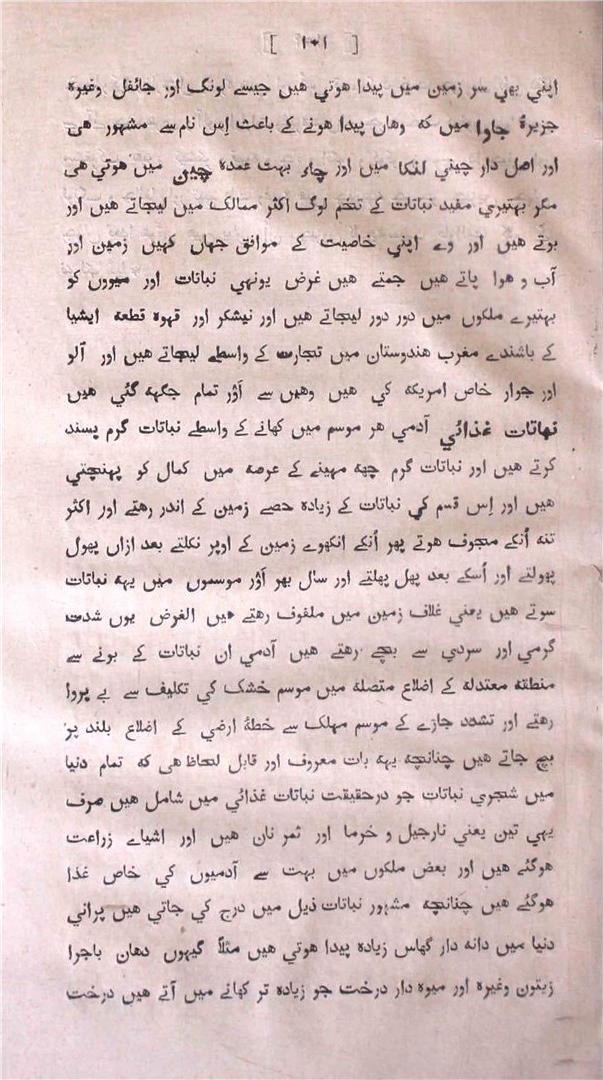 [ ۱۰۱ ]
اپني بهي سر زمين ميں پيدا هوتي هيں جيسے لونگ اور جائفل وغيره
جزيرۂ جاوا ميں که وهاں پيدا هونے کے باعث اِس نام سے مشهور هی
اور اصل دار چيني لنکا ميں اور چاء بهت عمده چين ميں هوتي هی
مگر بهتيري مفيد نباتات کے تخم لوگ اکثر ممالک ميں ليجاتے هيں اور
بوتے هيں اور وے اپني خاصيت کے موافق جهاں کهيں زمين اور
آب و هوا پاتے هيں جمتے هيں غرض يونهي نباتات اور ميووں کو
بهتيرے ملکوں ميں دور دور ليجاتے هيں اور نيشکر اور قهوه قطعه ايشيا
کے باشندے مغرب هندوستان ميں تجارت کے واسطے ليجاتے هيں اور آلو
اور جوار خاص امريکه کي هيں وهيں سے اَوْر تمام جگهه گئي هيں
نباتات غذائي آدمي هر موسم ميں کهانے کے واسطے نباتات گرم پسند
کرتے هيں اور نباتات گرم چهه مهينے کے عرصه ميں کمال کو پهنچتي
هيں اور اِس قسم کي نباتات کے زياده حصے زمين کے اندر رهتے اور اکثر
تنه اُنکے مجوف هوتے پهر اُنکے انکهوے زمين کے اوپر نکلتے بعد ازاں پهول
پهولتے اور اُسکے بعد پهل پهلتے اور سال بهر اَوْر موسموں ميں يهه نباتات
سوتے هيں يعني غلاف زمين ميں ملفوف رهتے هيں الغرض يوں شدت
گرمي اور سردي سے بچے رهتے هيں آدمي ان نباتات کے بونے سے
منطقه معتدله کے اضلاع متصله ميں موسم خشک کي تکليف سے بے پروا
رهتے اور تشدد جاڑے کے موسم مهلک سے خطۂ ارضي کے اضلاع بلند پر
بچ جاتے هيں چنانچه يهه بات معروف اور قابل لحاظ هی که تمام دنيا
ميں شجري نباتات جو درحقيقت نباتات غذائي ميں شامل هيں صرف
يهي تين يعني نارجيل و خرما اور ثمر نان هيں اور اشياے زراعت
هوگئے هيں اور بعض ملکوں ميں بهت سے آدميوں کي خاص غذا
هوگئے هيں چنانچه مشهور نباتات ذيل ميں درج کي جاتي هيں پراني
دنيا ميں دانه دار گهاس زياده پيدا هوتي هيں مثلاً گيهوں دهان باجرا
زيتون وغيره اور ميوه دار درخت جو زياده تر کهانے ميں آتے هيں درخت